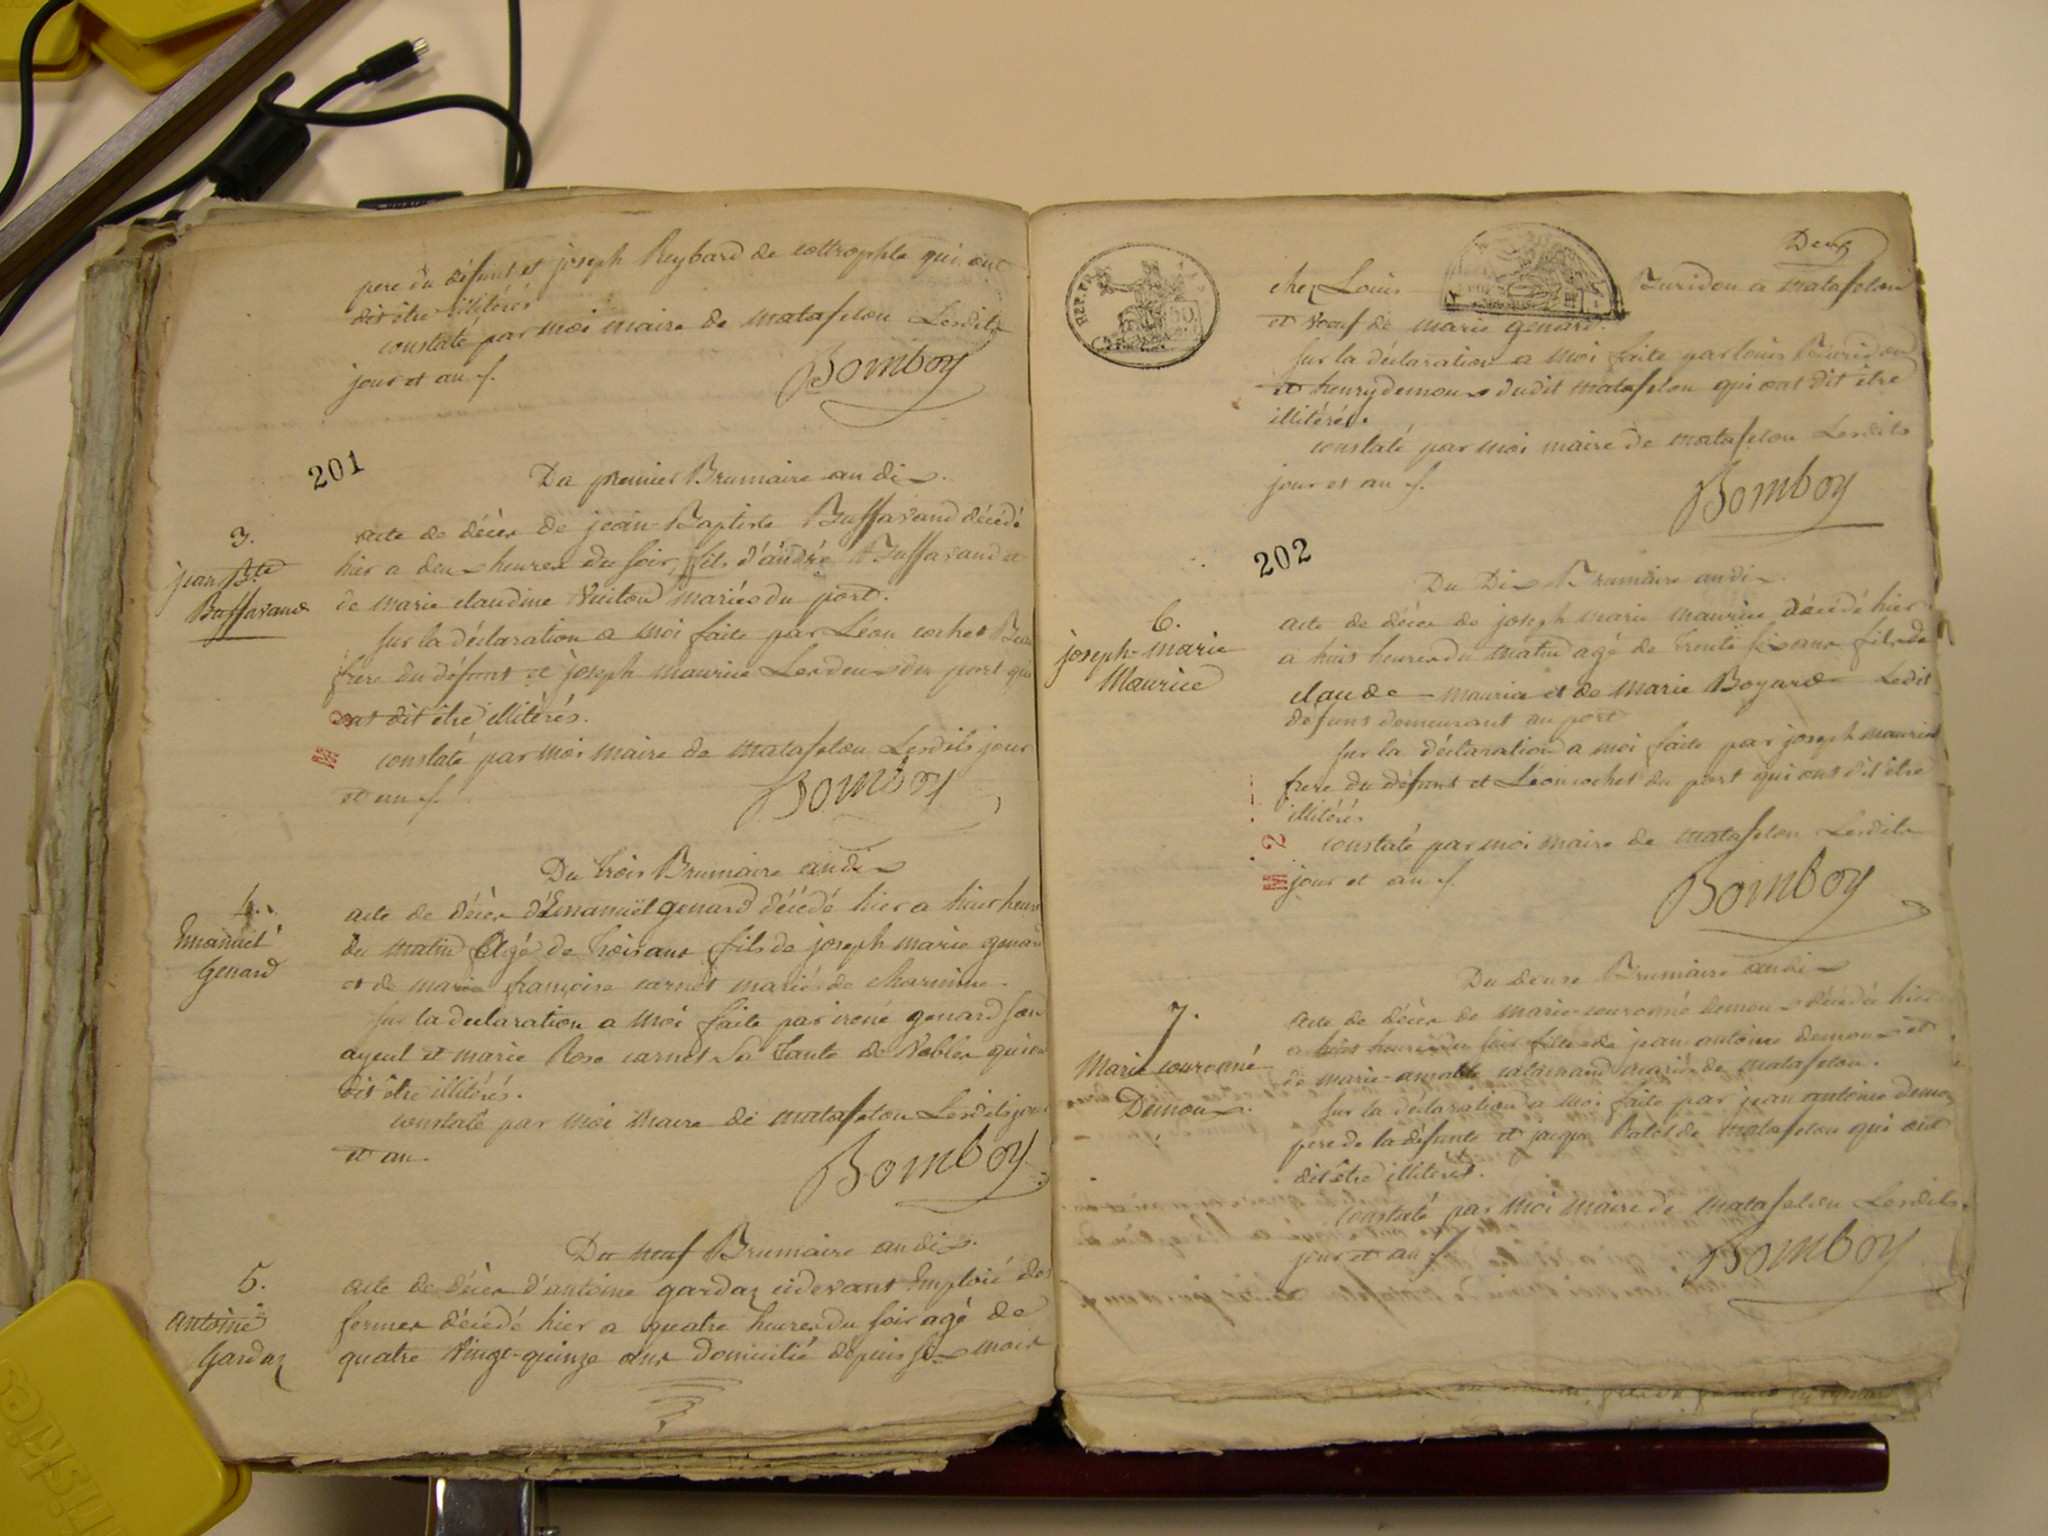 pere du défunt et joseph Reybard de cottrophle qui ont
dit être illitérés
constaté par moi maire de matafelon Lesdits
jour et an f.
Bomboy
201
Du premier Brumaire an dix.
3.
jean Bte
Buffavand
acte de décès de jean-Baptiste Buffavand décédé
hier a deux heures du soir, fils d'andré Buffavand et
de marie claudine Vuitou mariés du port.
sur la déclaration a moi faite par Léon cochet Beau
frere du défunt et joseph maurice Les deux du port qui
ont dit être illitérés.
constaté par moi maire de matafelon Lesdits jour
et an f.
Bomboy
Du trois Brumaire an dix
4.
Emanuel
Genard
acte de décès d'Emanuel genard décédé hier a huit heures
du matin agé de trois ans fils de joseph marie genard
et de marie françoise carnet mariés de charmine.
sur la declaration a moi faite par irené genard son
ayeul et marie Rose carnet sa tante de Nobles qui on
dit être illitérés.
constaté par moi maire de matafelon Lesdits jour
et an.
Bomboy
Du neuf Brumaire an dix.
5.
antoine
Gardaz
acte de décès d'antoine gardaz cidevant Emploié des
fermes décédé hier a quatre heures du soir agé de
quatre Vingt-quinze ans domicilié depuis six mois
Deux
chez Louis Turidon a matafelon
et veuf de marie genard.
sur la déclaration a moi faite par louis
et henry demoux dudit matafelon qui ont dit être
illitérés.
constaté par moi maire de matafelon Lesdits
jour et an f.
Bomboy
202
Du Dix Brumaire an dix.
6.
joseph-marie
Maurice
acte de décès de joseph marie maurice décédé hier
a huit heures du matin agé de trente six ans fils de
claude maurice et de marie Boyard Ledit
defunt demeurant au port
sur la déclaration a moi faite par joseph maurice
frere du défunt et Léon cochet du port qui ont dit être
illitérés
constaté par moi maire de matafelon Lesdits
jour et an f.
Bomboy
Du douze Brumaire an dix
7.
Marie couronné
Demoux.
acte de décès de marie-couronné demoux décédée hier
a huit heures du soir fille de jean antoine demoux et
de marie-amable mariés de matafelon.
sur la déclaration a moi faite par jean antoine demoux
pere de la défunte et jacque de matafelon qui ont
dit être illiterés.
constaté par moi maire de matafelon Lesdits
jour et an f.
Bomboy